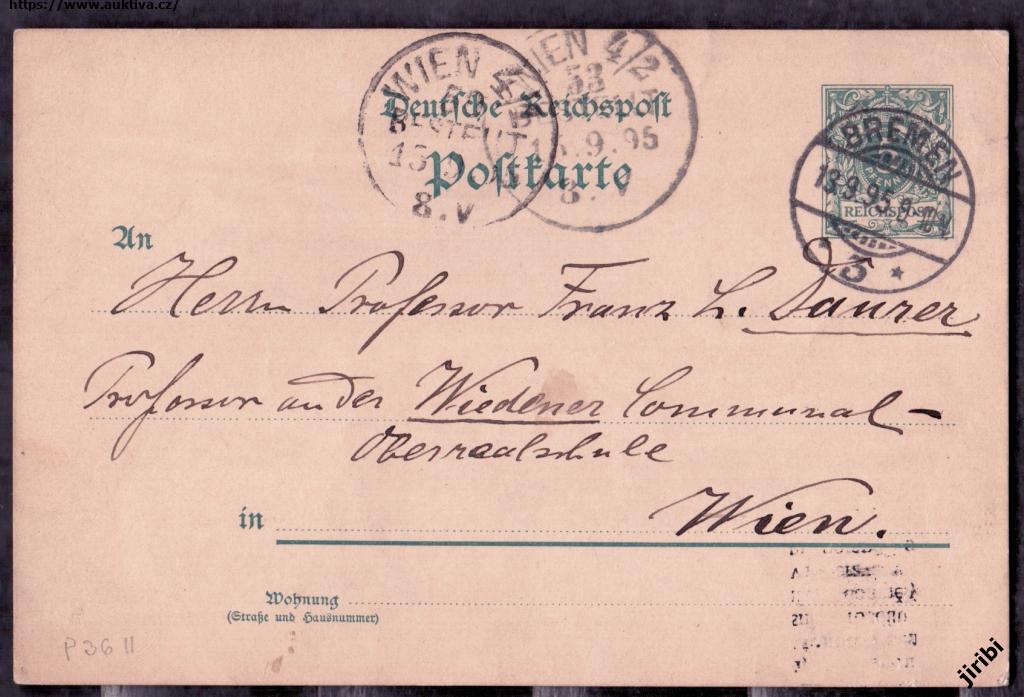 https://www.auktiva.cz/
WIEN 4/2
53
15.9.95
8.V
WIEN 4/
BESTELLT
15
8.V
Deutsche Reichspost
Postkarte
BREMEN
13.9.95
REICHSPOST
5 *
An
Herrn Professor Franz L. Daurer
Professor an der Wiedener Communal-
Oberrealschule
in Wien.
Wohnung
(Straße und Hausnummer)
P 36 II
jiribi